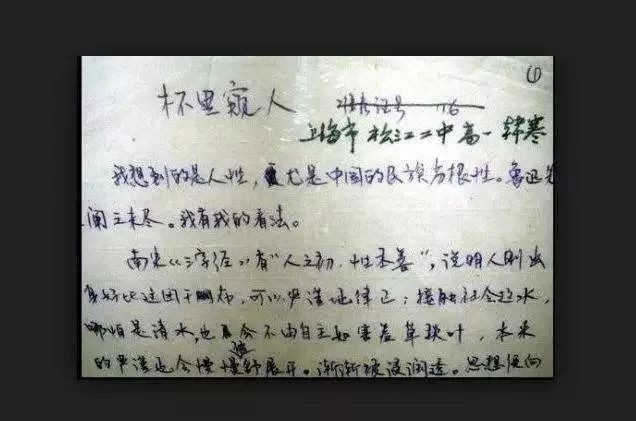 (1)
杯里窥人 准考证号 116
上海市松江二中高一韩寒
我想到的是人性,尤是中国的民族劣根性。鲁迅先
阐之未尽。我有我的看法。
南宋《三字经》有“人之初,性本善”,说明人刚出
身好比这团干布,可以严谨地律己;接触社会这水,
哪怕是清水,也会不由自主如害羞草叶,本来
的严谨也会慢慢地舒展开。渐渐被浸润透。思想便向